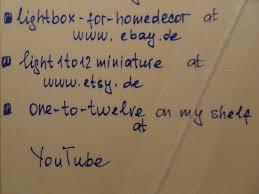 • lightbox-for-homedecor at
www.ebay.de
• light1to12miniature at
www.etsy.de
• one-to-twelve on my shelf
at
YouTube